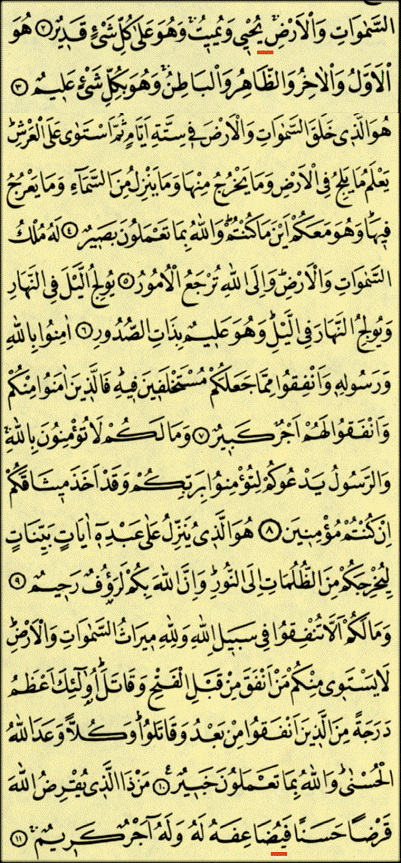 السَّمٰوَاتِ وَالْاَرْضِۚ يُحْيٖي وَيُمٖيتُۚ وَهُوَ عَلٰى كُلِّ شَيْءٍ قَدٖيرٌ ﴿٢﴾ هُوَ
الْاَوَّلُ وَالْاٰخِرُ وَالظَّاهِرُ وَالْبَاطِنُۚ وَهُوَ بِكُلِّ شَيْءٍ عَلٖيمٌ ﴿٣﴾
هُوَ الَّذٖي خَلَقَ السَّمٰوَاتِ وَالْاَرْضَ فٖي سِتَّةِ اَيَّامٍ ثُمَّ اسْتَوٰى عَلَى الْعَرْشِۜ
يَعْلَمُ مَا يَلِجُ فِي الْاَرْضِ وَمَا يَخْرُجُ مِنْهَا وَمَا يَنْزِلُ مِنَ السَّمَٓاءِ وَمَا يَعْرُجُ
فٖيهَاۜ وَهُوَ مَعَكُمْ اَيْنَ مَا كُنْتُمْۜ وَاللّٰهُ بِمَا تَعْمَلُونَ بَصٖيرٌ ﴿٤﴾ لَهُ مُلْكُ
السَّمٰوَاتِ وَالْاَرْضِۜ وَاِلَى اللّٰهِ تُرْجَعُ الْاُمُورُ ﴿٥﴾ يُولِجُ الَّيْلَ فِي النَّهَارِ
وَيُولِجُ النَّهَارَ فِي الَّيْلِۜ وَهُوَ عَلٖيمٌ بِذَاتِ الصُّدُورِ ﴿٦﴾ اٰمِنُوا بِاللّٰهِ
وَرَسُولِهٖ وَاَنْفِقُوا مِمَّا جَعَلَكُمْ مُسْتَخْلَفٖينَ فٖيهِۜ فَالَّذٖينَ اٰمَنُوا مِنْكُمْ
وَاَنْفَقُوا لَهُمْ اَجْرٌ كَبٖيرٌ ﴿٧﴾ وَمَا لَكُمْ لَا تُؤْمِنُونَ بِاللّٰهِۚ
وَالرَّسُولُ يَدْعُوكُمْ لِتُؤْمِنُوا بِرَبِّكُمْ وَقَدْ اَخَذَ مٖيثَاقَكُمْ
اِنْ كُنْتُمْ مُؤْمِنٖينَ ﴿٨﴾ هُوَ الَّذٖي يُنَزِّلُ عَلٰى عَبْدِهٖٓ اٰيَاتٍ بَيِّنَاتٍ
لِيُخْرِجَكُمْ مِنَ الظُّلُمَاتِ اِلَى النُّورِۜ وَاِنَّ اللّٰهَ بِكُمْ لَرَؤُفٌ رَحٖيمٌ ﴿٩﴾
وَمَا لَكُمْ اَلَّا تُنْفِقُوا فٖي سَبٖيلِ اللّٰهِ وَلِلّٰهِ مٖيرَاثُ السَّمٰوَاتِ وَالْاَرْضِۜ
لَا يَسْتَوٖي مِنْكُمْ مَنْ اَنْفَقَ مِنْ قَبْلِ الْفَتْحِ وَقَاتَلَۜ اُو۬لٰٓئِكَ اَعْظَمُ
دَرَجَةً مِنَ الَّذٖينَ اَنْفَقُوا مِنْ بَعْدُ وَقَاتَلُواۜ وَكُلًّا وَعَدَ اللّٰهُ
الْحُسْنٰىۜ وَاللّٰهُ بِمَا تَعْمَلُونَ خَبٖيرٌ ﴿١٠﴾ مَنْ ذَا الَّذٖي يُقْرِضُ اللّٰهَ
قَرْضًا حَسَنًا فَيُضَاعِفَهُ لَهُ وَلَهُٓ اَجْرٌ كَرٖيمٌۚ ﴿١١﴾